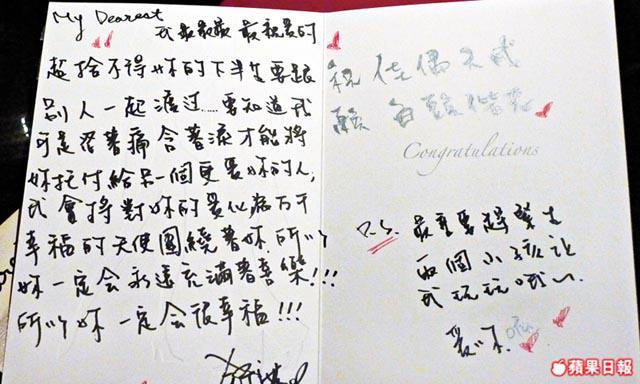 My Dearest
我最最最最親愛的
超捨不得妳的下半生要跟
別人一起渡过......要知道我
可是忍著痛含著淚才能將
妳托付給另一個更愛妳的人,
我會將對妳的愛化為万千
幸福的天使圍繞著妳所以
妳一定会永遠充滿著喜樂!!!
所以妳一定会很幸福!!!
祝佳偶天成
願白頭偕老
Congratulations
P.S. 最重要趕緊生
兩個小孩让
我玩玩
愛你
蘋果日報